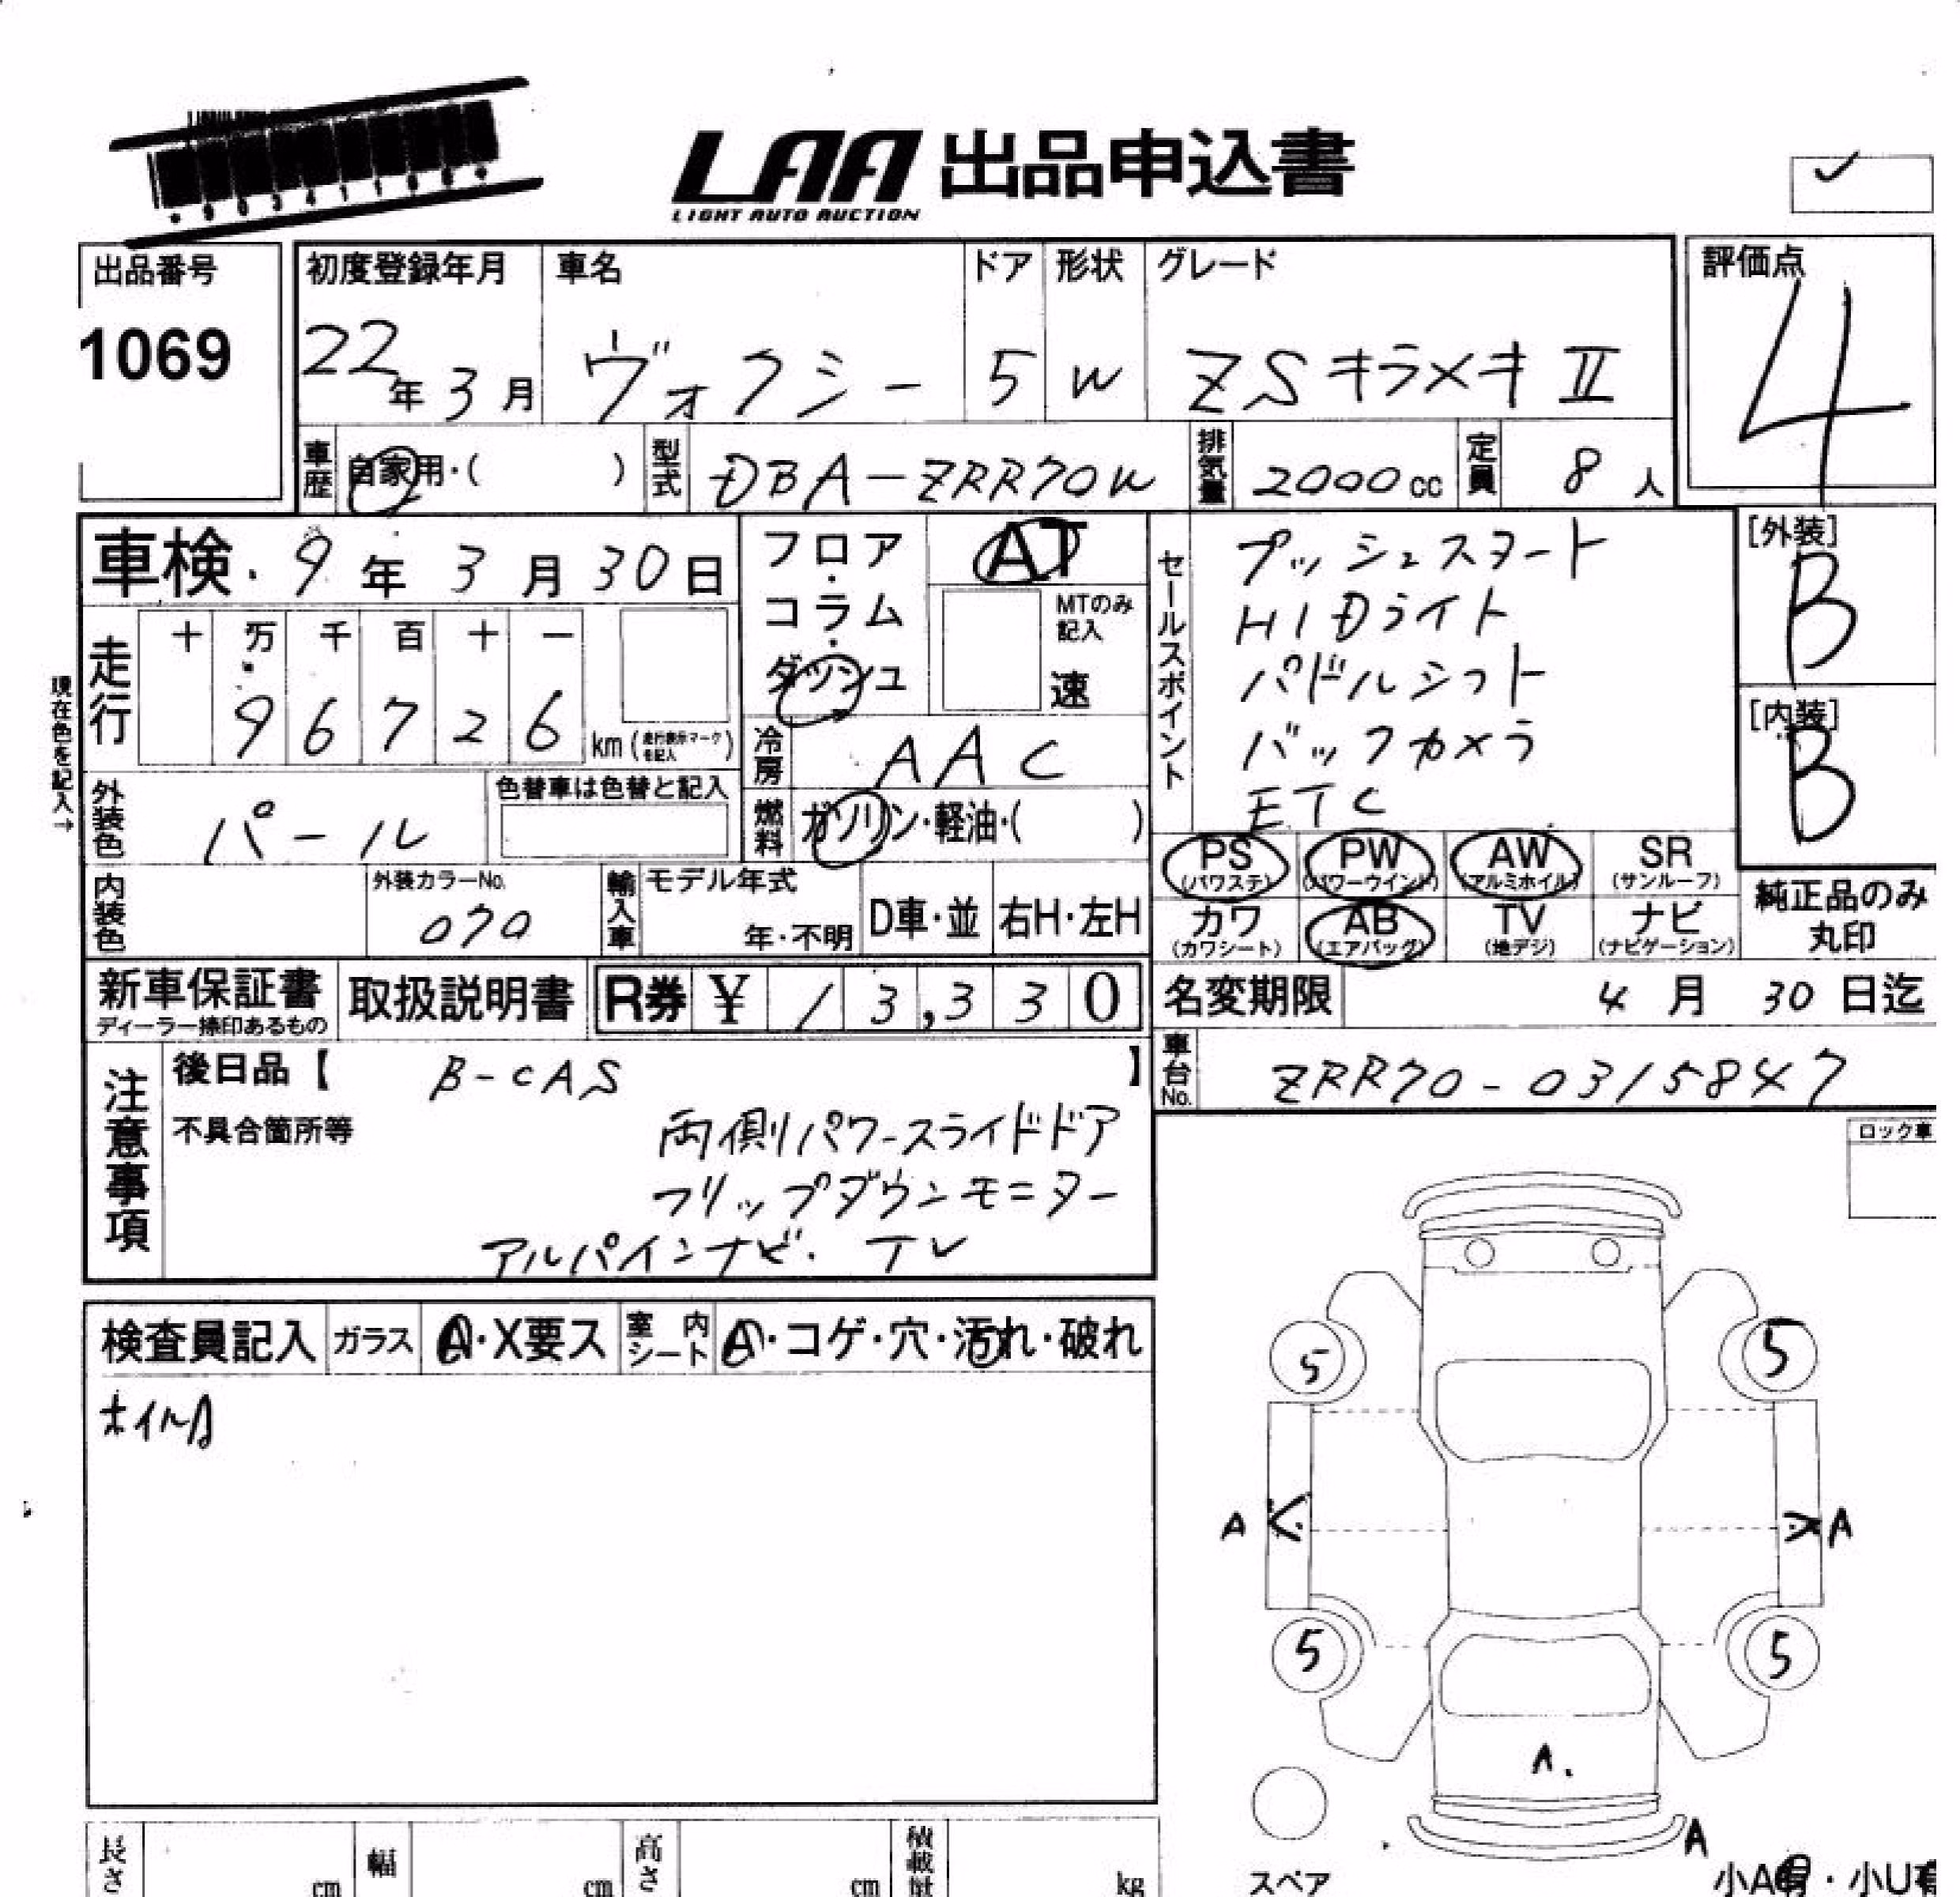 LAA 出品申込書
LIGHT AUTO AUCTION
出品番号
1069
初度登録年月 車名 ドア 形状 グレード 評価点
22年 3月 ヴォクシー 5 W ZS キラメキ Ⅱ 4
車歴 自家用・( ) 型式 DBA-ZRR70W 排気量 2000cc 定員 8人
車検 9年 3月 30日
フロア・コラム・ダッシュ
AT
MTのみ記入
速
セールスポイント
プッシュスタート
HIDライト
パドルシフト
バックカメラ
ETC
[外装]
B
[内装]
B
現在色を記入→
走行 十 万 千 百 十 一
9 6 7 2 6 km (走行表示マークを記入)
冷房 AAC
外装色 パール
色替車は色替と記入
燃料 ガソリン・軽油・( )
内装色
外装カラーNo.
070
輸入車 モデル年式 年・不明 D車・並 右H・左H
PS (パワステ) PW (パワーウインド) AW (アルミホイル) SR (サンルーフ)
カワ (カワシート) AB (エアバッグ) TV (地デジ) ナビ (ナビゲーション)
純正品のみ
丸印
新車保証書 取扱説明書 R券 ¥ 13,330
ディーラー捺印あるもの
名変期限 4月 30日迄
注意事項
後日品【 B-CAS 】
車台No. ZRR70-0315847
不具合箇所等
両側パワースライドドア
フリップダウンモニター
アルパインナビ・TV
ロック車
検査員記入 ガラス A・X要ス 室内シート A・コゲ・穴・汚れ・破れ
ホイルA
5 5
A A
5 5
A.
A
スペア
小A有・小U有
長さ cm 幅 cm 高さ cm 積載量 kg